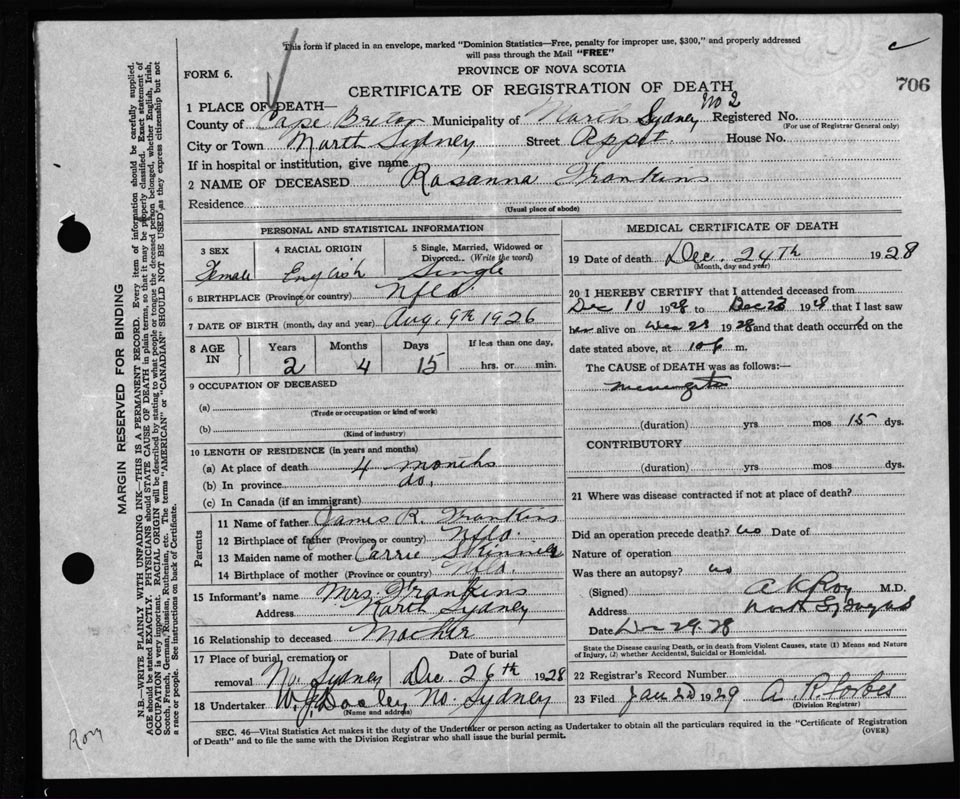 This form if placed in an envelope, marked "Dominion Statistics—Free, penalty for improper use, $300," and properly addressed
will pass through the Mail "FREE"
c
FORM 6.
PROVINCE OF NOVA SCOTIA
CERTIFICATE OF REGISTRATION OF DEATH
706
1 PLACE OF DEATH—
No 2
County of Cape Breton Municipality of North Sydney Registered No.
(For use of Registrar General only)
City or Town North Sydney Street House No.
If in hospital or institution, give name
2 NAME OF DECEASED Rosanna Frankins
Residence
(Usual place of abode)
PERSONAL AND STATISTICAL INFORMATION
3 SEX 4 RACIAL ORIGIN 5 Single, Married, Widowed or Divorced.. (Write the word)
Female English Single
6 BIRTHPLACE (Province or country) Nfld
7 DATE OF BIRTH (month, day and year) Aug. 9th 1926
8 AGE IN Years Months Days If less than one day,
2 4 15 hrs. or min.
9 OCCUPATION OF DECEASED
(a)
(Trade or occupation or kind of work)
(b)
(Kind of industry)
10 LENGTH OF RESIDENCE (in years and months)
(a) At place of death 4 months
(b) In province do.
(c) In Canada (if an immigrant)
Parents
11 Name of father James R. Frankins
12 Birthplace of father (Province or country) Nfld.
13 Maiden name of mother Carrie Skinner
14 Birthplace of mother (Province or country) Nfld.
15 Informant's name Mrs. Frankins
Address North Sydney
16 Relationship to deceased Mother
17 Place of burial, cremation or removal Date of burial
No. Sydney Dec 26th 1928
18 Undertaker W. J. Dooley No. Sydney
(Name and address)
MEDICAL CERTIFICATE OF DEATH
19 Date of death Dec. 24th 1928
(Month, day and year)
20 I HEREBY CERTIFY that I attended deceased from
Dec 10 1928 to Dec 23 1928 that I last saw
her alive on Dec 23 1928 and that death occurred on the
date stated above, at 10 p m.
The CAUSE of DEATH was as follows:
meningitis
(duration) yrs mos 15 dys.
CONTRIBUTORY
(duration) yrs mos dys.
21 Where was disease contracted if not at place of death?
Did an operation precede death? no Date of
Nature of operation
Was there an autopsy? no
(Signed) A K Roy M.D.
Address North Sydney
Date Dec 29. 28
State the Disease causing Death, or in death from Violent Causes, state (1) Means and Nature
of Injury, (2) whether Accidental, Suicidal or Homicidal.
22 Registrar's Record Number
23 Filed Jan 2d 1929 A. R. Forbes
(Division Registrar)
SEC. 46—Vital Statistics Act makes it the duty of the Undertaker or person acting as Undertaker to obtain all the particulars required in the "Certificate of Registration
of Death" and to file the same with the Division Registrar who shall issue the burial permit.
(OVER)
MARGIN RESERVED FOR BINDING
N.B.—WRITE PLAINLY WITH UNFADING INK—THIS IS A PERMANENT RECORD. Every item of information should be carefully supplied.
AGE should be stated EXACTLY. PHYSICIANS should STATE CAUSE OF DEATH in plain terms, so that it may be properly classified. Exact statement of
OCCUPATION is very important. RACIAL ORIGIN will be described by stating to what people or tongue the deceased person belonged, whether English, Irish,
Scotch, French, German, Russian, Ruthenian, etc. The terms "AMERICAN" or "CANADIAN" SHOULD NOT BE USED as they express citizenship but not
a race or people. See instructions on back of Certificate.
Roy